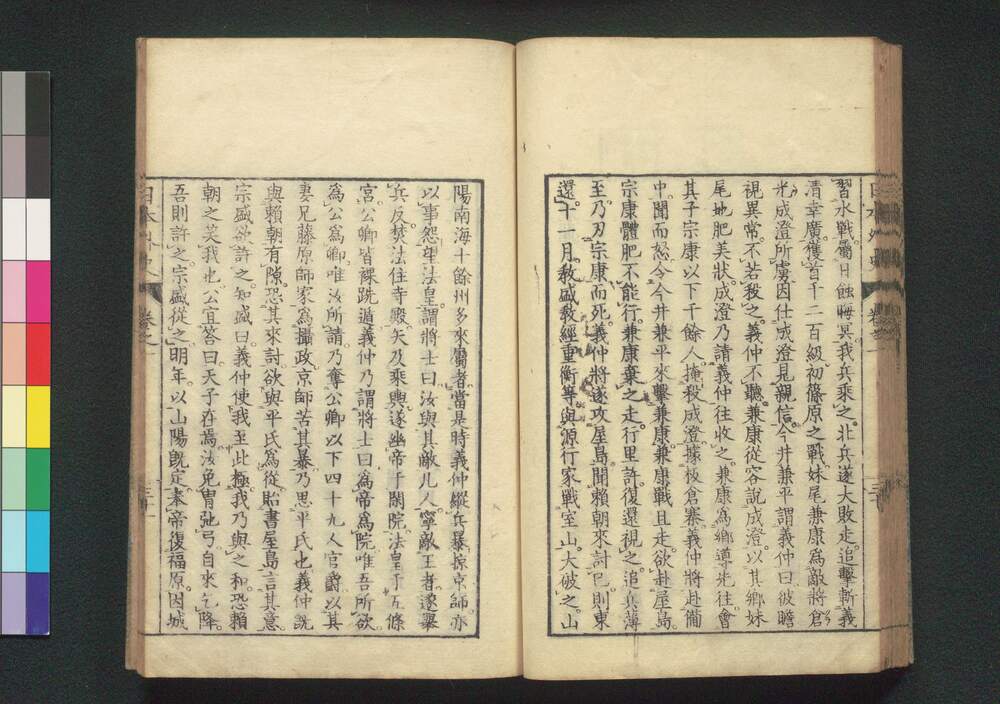 習水戰。屬日蝕晦冥。我兵乘之。北兵遂大敗走。追擊斬義
清幸廣。獲首千二百級。初篠原之戰。妹尾兼康為敵將倉
光成澄所虜。因仕成澄見親信。今井兼平謂義仲曰。彼瞻
視異常。不若殺之。義仲不聽。兼康從容說成澄。以其鄉妹
尾地肥美狀。成澄乃請義仲往收之。兼康為鄉導先往。會
其子宗康以下千餘人。掩殺成澄。據板倉寨。義仲將赴備
中。聞而怒。令今井兼平來擊兼康。兼康戰且走。欲赴屋島。
宗康體肥不能行。兼康棄之走。行里許。復還視之。追兵薄
至。乃刃宗康而死。義仲將遂攻屋島。聞賴朝來討已。則東
還。十一月。教盛教經重衡等。與源行家戰室山。大破之。山
陽南海十餘州多來屬者。當是時義仲縱兵暴掠京師。亦
以事怨望法皇。謂將士曰。汝與其敵几人。寧敵王者。遂舉
兵反。焚法住寺殿。矢及乘輿。遂幽帝于閑院。法皇于五條
宮。公卿皆裸跣遁。義仲乃謂將士曰。為帝為院唯吾所欲。
為公為卿唯汝所請。乃奪公卿以下四十九人官爵。以其
妻兄藤原師家為攝政。京師苦其暴。乃思平氏也。義仲既
與賴朝有隙。恐其來討。欲與平氏為從。貽書屋島言其意。
宗盛欲許之。知盛曰。義仲使我至此極。我乃與之和。恐賴
朝之笑我也。公宜答曰。天子在焉。汝免冑弛弓。自來乞降。
吾則許之。宗盛從之。明年。以山陽既定。奉帝復福原。因城
日本外史
卷之一